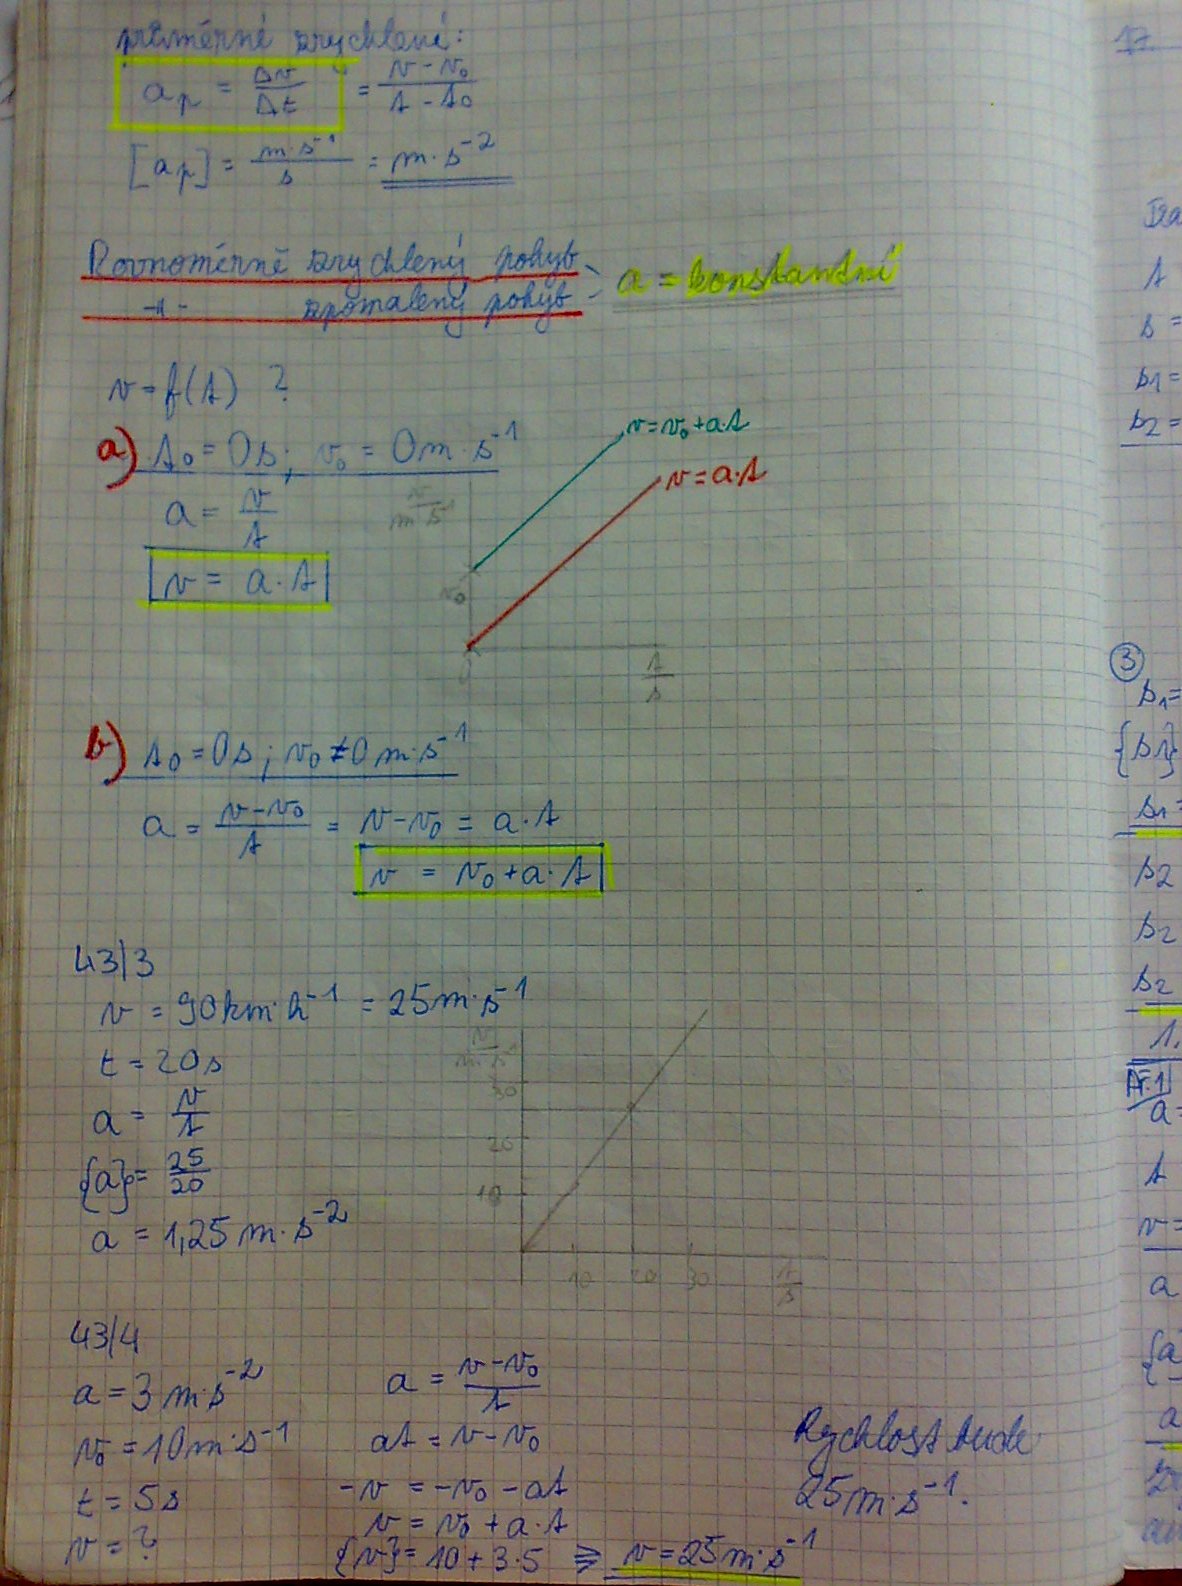 průměrné zrychlení:
a_p = Δv/Δt = v - v₀/t - t₀
[a_p] = m·s⁻¹/s = m·s⁻²
Rovnoměrně zrychlený pohyb
-||- zpomalený pohyb - a = konstantní
v = f(t) ?
a) t₀ = 0s; v₀ = 0m·s⁻¹
a = v/t
v = a·t
v = v₀ + a·t
v = a·t
v/m·s⁻¹
v₀
0
t/s
b) t₀ = 0s; v₀ ≠ 0m·s⁻¹
a = v - v₀/t = v - v₀ = a·t
v = v₀ + a·t
43/3
v = 90km·h⁻¹ = 25m·s⁻¹
t = 20s
a = v/t
{a} = 25/20
a = 1,25m·s⁻²
v/m·s⁻¹
30
20
10
10 20 30 t/s
43/4
a = 3m·s⁻²
v₀ = 10m·s⁻¹
t = 5s
v = ?
a = v - v₀/t
at = v - v₀
-v = -v₀ - at
v = v₀ + a·t
{v} = 10 + 3·5 ⇒ v = 25m·s⁻¹
Rychlost bude
25m·s⁻¹.
17
t
s =
s1 =
s2 =
3
s₁ =
{s1}
s₁ =
s2
s2
s2
1.
a =
t
v =
a
{a
a